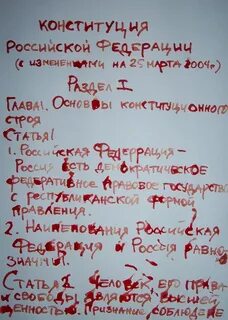 КОНСТИТУЦИЯ
РОССИЙСКОЙ ФЕДЕРАЦИИ
(с изменениями на 25 марта 2004г)
РАЗДЕЛ I
ГЛАВА 1. ОСНОВЫ КОНСТИТУЦИОННОГО
СТРОЯ
СТАТЬЯ 1
1. РОССИЙСКАЯ ФЕДЕРАЦИЯ –
РОССИЯ ЕСТЬ ДЕМОКРАТИЧЕСКОЕ
ФЕДЕРАТИВНОЕ ПРАВОВОЕ ГОСУДАРСТВО
С РЕСПУБЛИКАНСКОЙ ФОРМОЙ
ПРАВЛЕНИЯ.
2. НАИМЕНОВАНИЯ РОССИЙСКАЯ
ФЕДЕРАЦИЯ И РОССИЯ РАВНО-
ЗНАЧНЫ.
СТАТЬЯ 2. ЧЕЛОВЕК, ЕГО ПРАВА
И СВОБОДЫ ЯВЛЯЮТСЯ ВЫСШЕЙ
ЦЕННОСТЬЮ. ПРИЗНАНИЕ, СОБЛЮДЕНИЕ